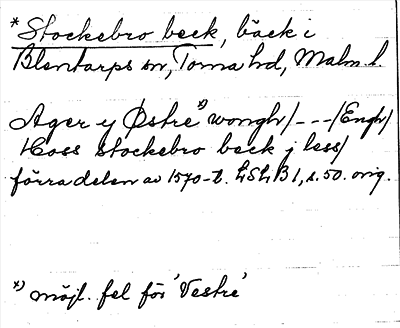 *Stockebro beck, bäck i
Blentarps sn, Torna hd, Malm. l.
Ager y Østre *) wongh/ - - - /Engh/
Hoss Stockebro beck j less/
förra delen av 1570-t. LSLB 1, s. 50. orig.
*) möjl. fel för 'Vestre'